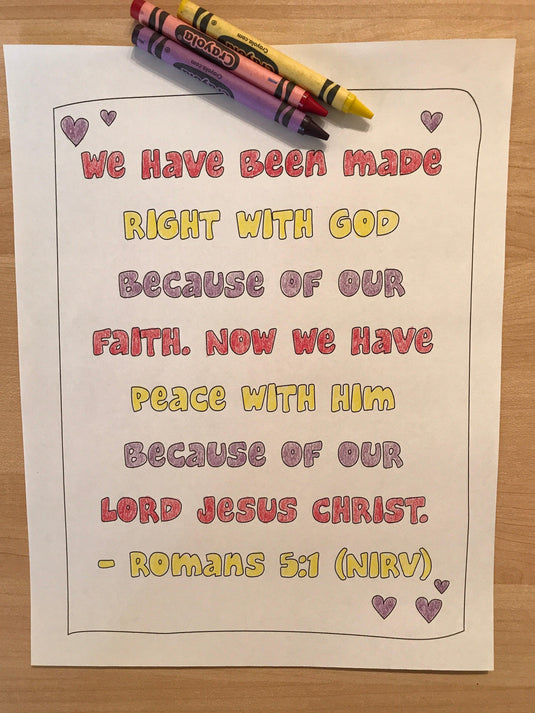 Crayola
Crayola.com
Crayola
Crayola.com
We Have Been Made
RIGHT WITH GOD
Because OF OUR
FAITH. NOW We Have
Peace WITH HIM
Because OF OUR
LORD Jesus CHRIST.
- Romans 5:1 (NIRV)